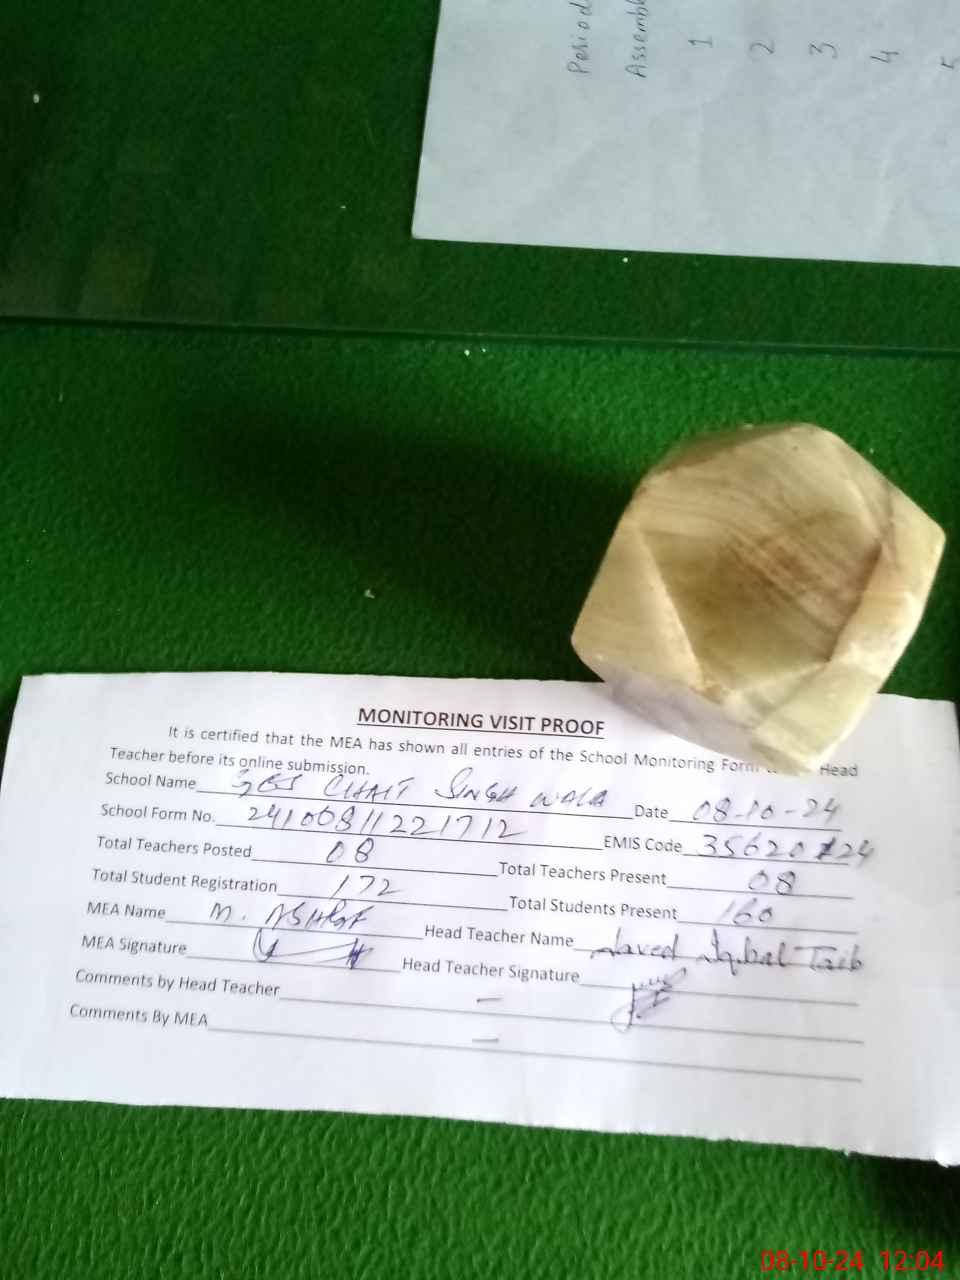 Period
Assembl
1
2
3
4
5
MONITORING VISIT PROOF
It is certified that the MEA has shown all entries of the School Monitoring Form Head
Teacher before its online submission.
School Name GES CHAIT SINGH WALA Date 08-10-24
School Form No. 24100811221712 EMIS Code 35620124
Total Teachers Posted 08 Total Teachers Present 08
Total Student Registration 172 Total Students Present 160
MEA Name M. ASHRAF Head Teacher Name Javed Iqbal
MEA Signature Head Teacher Signature
Comments by Head Teacher —
Comments By MEA —
08-10-24 12:04